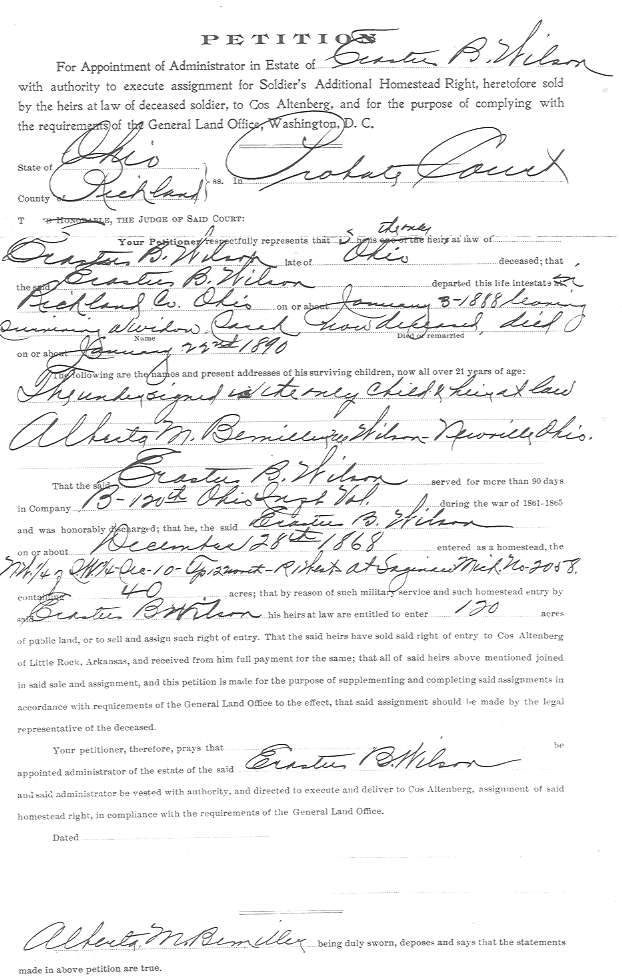 PETITION
For Appointment of Administrator in Estate of Erastus B. Wilson
with authority to execute assignment for Soldier's Additional Homestead Right, heretofore sold
by the heirs at law of deceased soldier, to Cos Altenberg, and for the purpose of complying with
the requirements of the General Land Office, Washington, D. C.
State of Ohio
County of Richland } ss. In Probate Court
To the Honorable, the Judge of Said Court:
Your Petitioner respectfully represents that S he is one of the the only heirs at law of
Erastus B. Wilson late of Ohio deceased; that
the said Erastus B. Wilson departed this life intestate in
Richland Co. Ohio on or about January 3-1888 leaving
surviving a widow. Name now deceased, died Died or remarried
on or about January 22nd 1890
The following are the names and present addresses of his surviving children, now all over 21 years of age:
The undersigned is the only child & heir at law
Alberta M. Bemiller nee Wilson - Newville Ohio.
That the said Erastus B. Wilson served for more than 90 days
in Company B-120th Ohio Vol. during the war of 1861-1865
and was honorably discharged; that he, the said Erastus B. Wilson
on or about December 28th 1868 entered as a homestead, the
NW 1/4 of SW 1/4 Sec-10- at Saginaw Mich. No-2058.
containing 40 acres; that by reason of such military service and such homestead entry by
said Erastus B Wilson his heirs at law are entitled to enter 120 acres
of public land, or to sell and assign such right of entry. That the said heirs have sold said right of entry to Cos Altenberg
of Little Rock, Arkansas, and received from him full payment for the same; that all of said heirs above mentioned joined
in said sale and assignment, and this petition is made for the purpose of supplementing and completing said assignments in
accordance with requirements of the General Land Office to the effect, that said assignment should be made by the legal
representative of the deceased.
Your petitioner, therefore, prays that be
appointed administrator of the estate of the said Erastus B. Wilson
and said administrator be vested with authority, and directed to execute and deliver to Cos Altenberg, assignment of said
homestead right, in compliance with the requirements of the General Land Office.
Dated
Alberta M Bemiller being duly sworn, deposes and says that the statements
made in above petition are true.